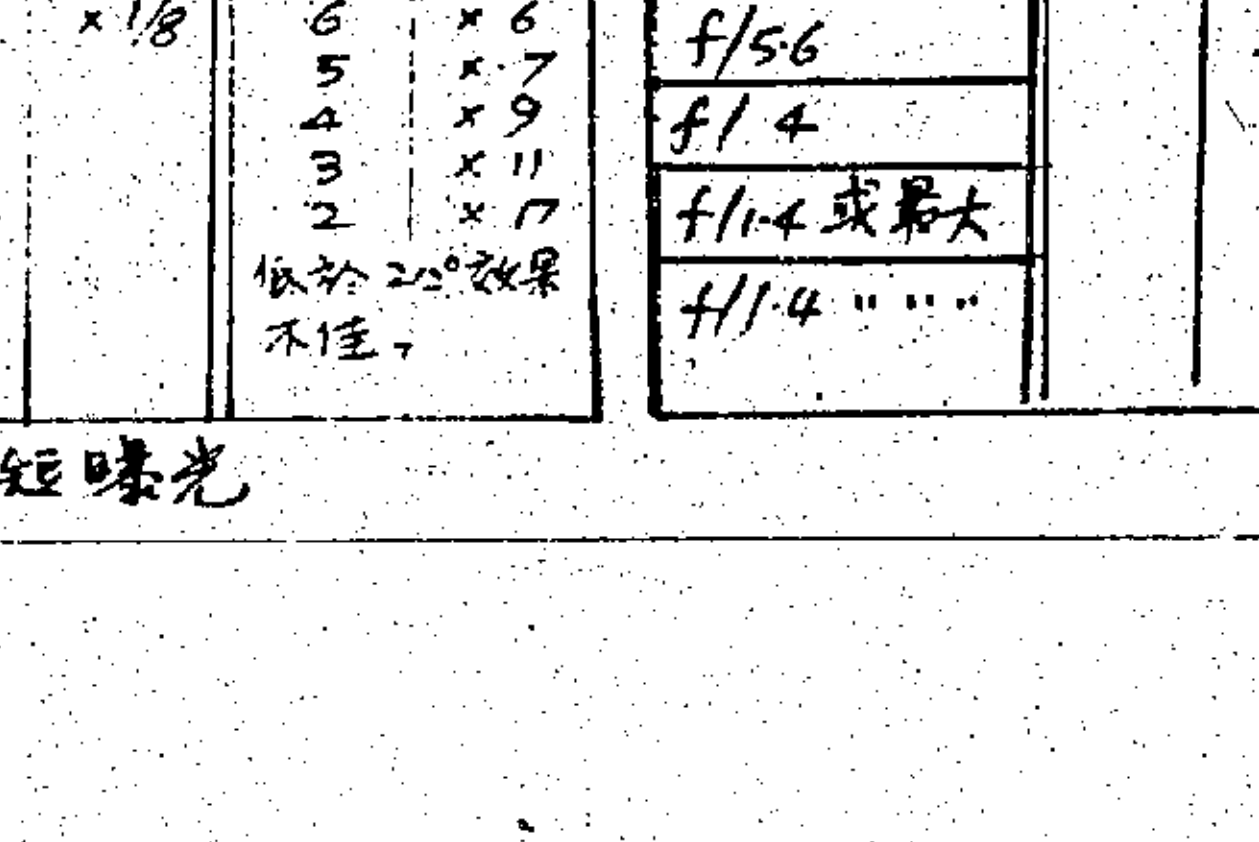 × 1/8
6 × 6
5 × 7
4 × 9
3 × 11
2 × 17
低於 2° 效果
不佳。
f/5.6
f/ 4
f/1.4 或最大
f/1.4 " " "
短曝光